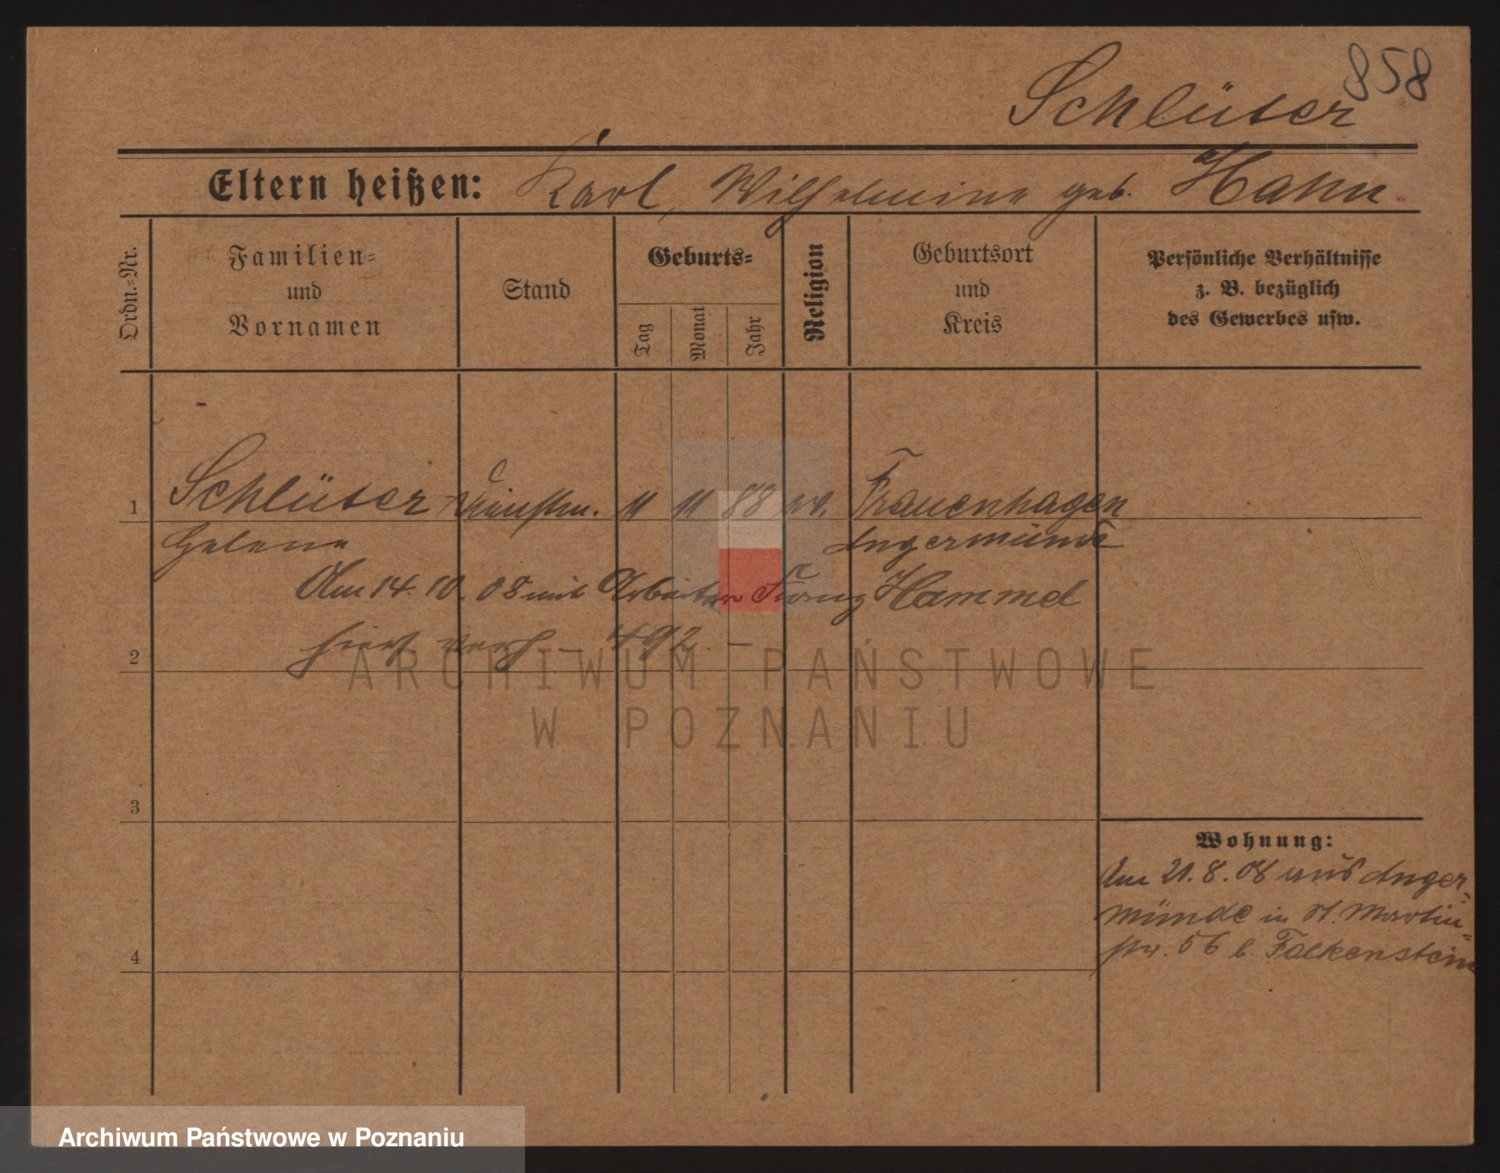 858
Schlüter
Eltern heißen: Karl, Wilhelmine geb. Hahn
Ordn.-Nr.
Familien-
und
Vornamen
Stand
Geburts-
Tag
Monat
Jahr
Religion
Geburtsort
und
Kreis
Persönliche Verhältnisse
z. B. bezüglich
des Gewerbes usw.
1 Schlüter Dienstm. 11 11 88 ev. Frauenhagen
Helene Angermünde
Am 14. 10. 08 mit Arbeiter Franz Hammel
hier verh - 492. -
2
3
4
Wohnung:
Am 21. 8. 08 aus Anger-
münde in St. Martin-
str. 56 b. Falkenstein
ARCHIWUM PAŃSTWOWE
W POZNANIU
Archiwum Państwowe w Poznaniu